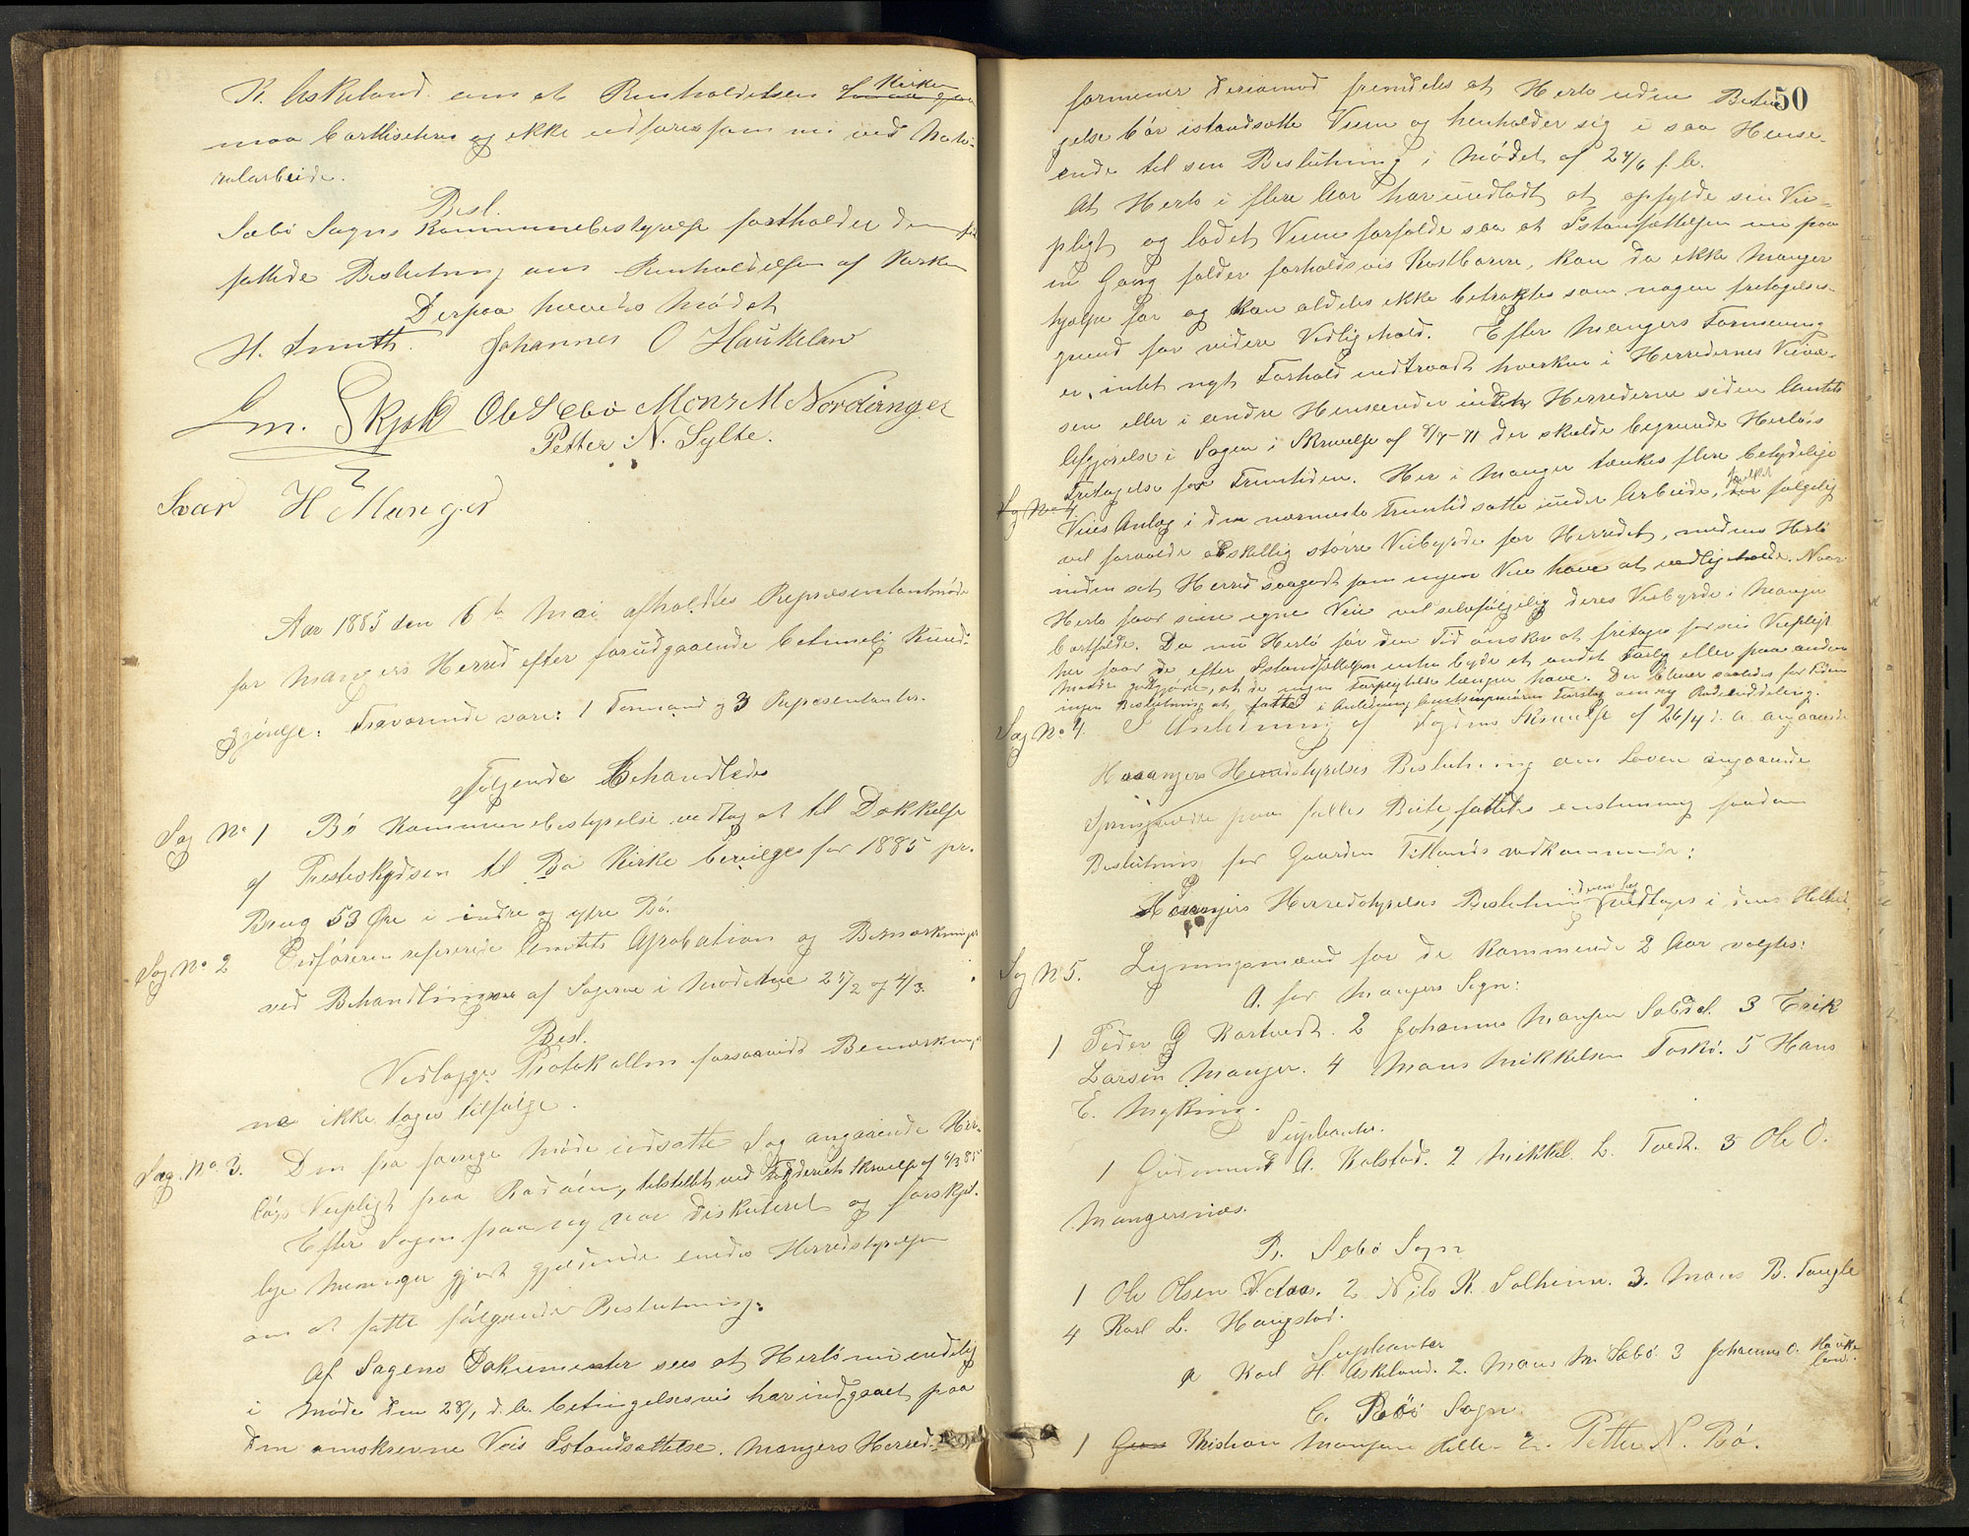 K. Askeland om at Renholdelsen af Kirken
maa bortlisiteres og ikke udføres som nu ved Natu-
ralarbeide.
Besl.
Sæbø Sogns Kommunebestyrelse fastholder den før
fattede Beslutning om Renholdelsen af Kirken
Derpaa hævedes Mødet
H. Smith. Johannes O Haukeland
Ole Sæbø Mons M Nordanger
Petter N. Sylte.
H Manger
Aar 1885 den 6te Mai afholdtes Repræsentantmøde
for Mangers Herred efter forudgaaende betimelig Kund-
gjørelse. Fraværende vare: 1 Formand og 3 Repræsentanter.
Følgende Behandledes
Sag No 1 Bø Kommunebestyrelse vedtog at til Dækkelse
af Presteskydsen til Bø Kirke bevilges for 1885 pr.
Brug 53 Øre i indre og ytre Bø.
Sag No 2 Ordføreren refererede Amtets Aprobation og Bemærkninger
ved Behandlingen af Sagerne i Møderne 25/2 og 4/3.
Besl.
Vedlægges Protokollen forsaavidt Bemærkninger-
ne ikke tages tilfølge.
Sag. No. 3. Den fra forrige Møde udsatte Sag angaaende Her-
løs Veipligt paa Radøen, tilstillet ved Fogderiets Skrivelse af 6/3 85
Efter Sagen paa ny var diskuteret og forskjel-
lige Meninger gjort gjældende enedes Herredstyrelsen
om at fatte følgende Beslutning:
Af Sagens Dokumenter sees at Herlø nu endelig
i Møde den 28/1 d.A. betingelsesvis har indgaaet paa
den omskrevne Veis Istandsættelse. Mangers Herred-
50
formener derimod fremdeles at Herlø uden Betin-
gelse bør istandsætte Veien og henholder sig i saa Hense-
ende til sin Beslutning i Mødet af 24/6 f.A.
At Herlø i flere Aar har undladt at opfylde sin Vei-
pligt og ladet Veien forfalde saa at Istandsættelsen nu paa
en Gang falder forholdsvis Kostbarere, kan da ikke Manger
hjælpe for og kan aldeles ikke betragtes som nogen fritagelses-
grund for videre Vedligehold. Efter Mangers Formening
er intet nyt Forhold indtraadt hverken i Herredernes Veivæ-
sen eller i andre Henseender Herrederne siden Amtets
Afgjørelse i Sagen i Skrivelse af 8/7-71 der skulde begrunde Herløs
Fritagelse for Fremtiden. Her i Manger tænkes flere betydelige
Veies Anlæg i den nærmeste Fremtid satte under Arbeide, følgelig
vil foraarsage adskillig større Veibyrde for Herredet, medens Herlø
inden sit Herred saagodt som ingen Vei have at vedligeholde. Naar
Herlø faar sine egne Veie vil selvfølgelig deres Veibyrde i Manger
bortfalde. Da nu Herlø før den Tid ønsker at fritages for sin Veipligt
her faar de efter Istandsættelsen enten byde et andet Forlig eller paa anden
Maade godtgjøre, at de ingen Forpligtelse længer have. Der bliver saaledes for Tiden
ingen Beslutning at fatte i Anledning Amtsingeniørens Forslag om ny Rodeinddeling.
Sag No 4. I Anledning af Fogdens Skrivelse af 26/4 d.A. angaaende
Hosangers Herredstyrelses Beslutning om Loven angaaende
paa fælles Beite fattedes enstemmig saadan
Beslutning for Gaarden Titlands vedkommende:
Hosangers Herredstyrelses Beslutning i denne Sag vedtages i dens Helhed.
Sag No 5. Ligningsmænd for de kommende 2 Aar valgtes:
A. for Mangers Sogn:
1 Peder G Kartveit. 2 Johannes Monsen Sæbdal. 3 Erik
Larsen Manger. 4 Mons Mikkelsen Toskø. 5 Hans
E. Mykking.
Suplianter.
1 Gudmund A. Kolstad. 2 Mikkel L. Tvedt. 3 Ole O.
Mangersnæs.
B. Sæbø Sogn
1 Ole Olsen Vetaas. 2 Nils K. Solheim. 3. Mons B. Taugle
4 Karl L. Haugstad.
Suplianter
Karl H. Askeland. 2. Mons M. Sæbø. 3 Johannes O. Hauke-
land.
C. Bøø Sogn.
1 Kristian Monsen Helle. 2. Petter N. Bø.